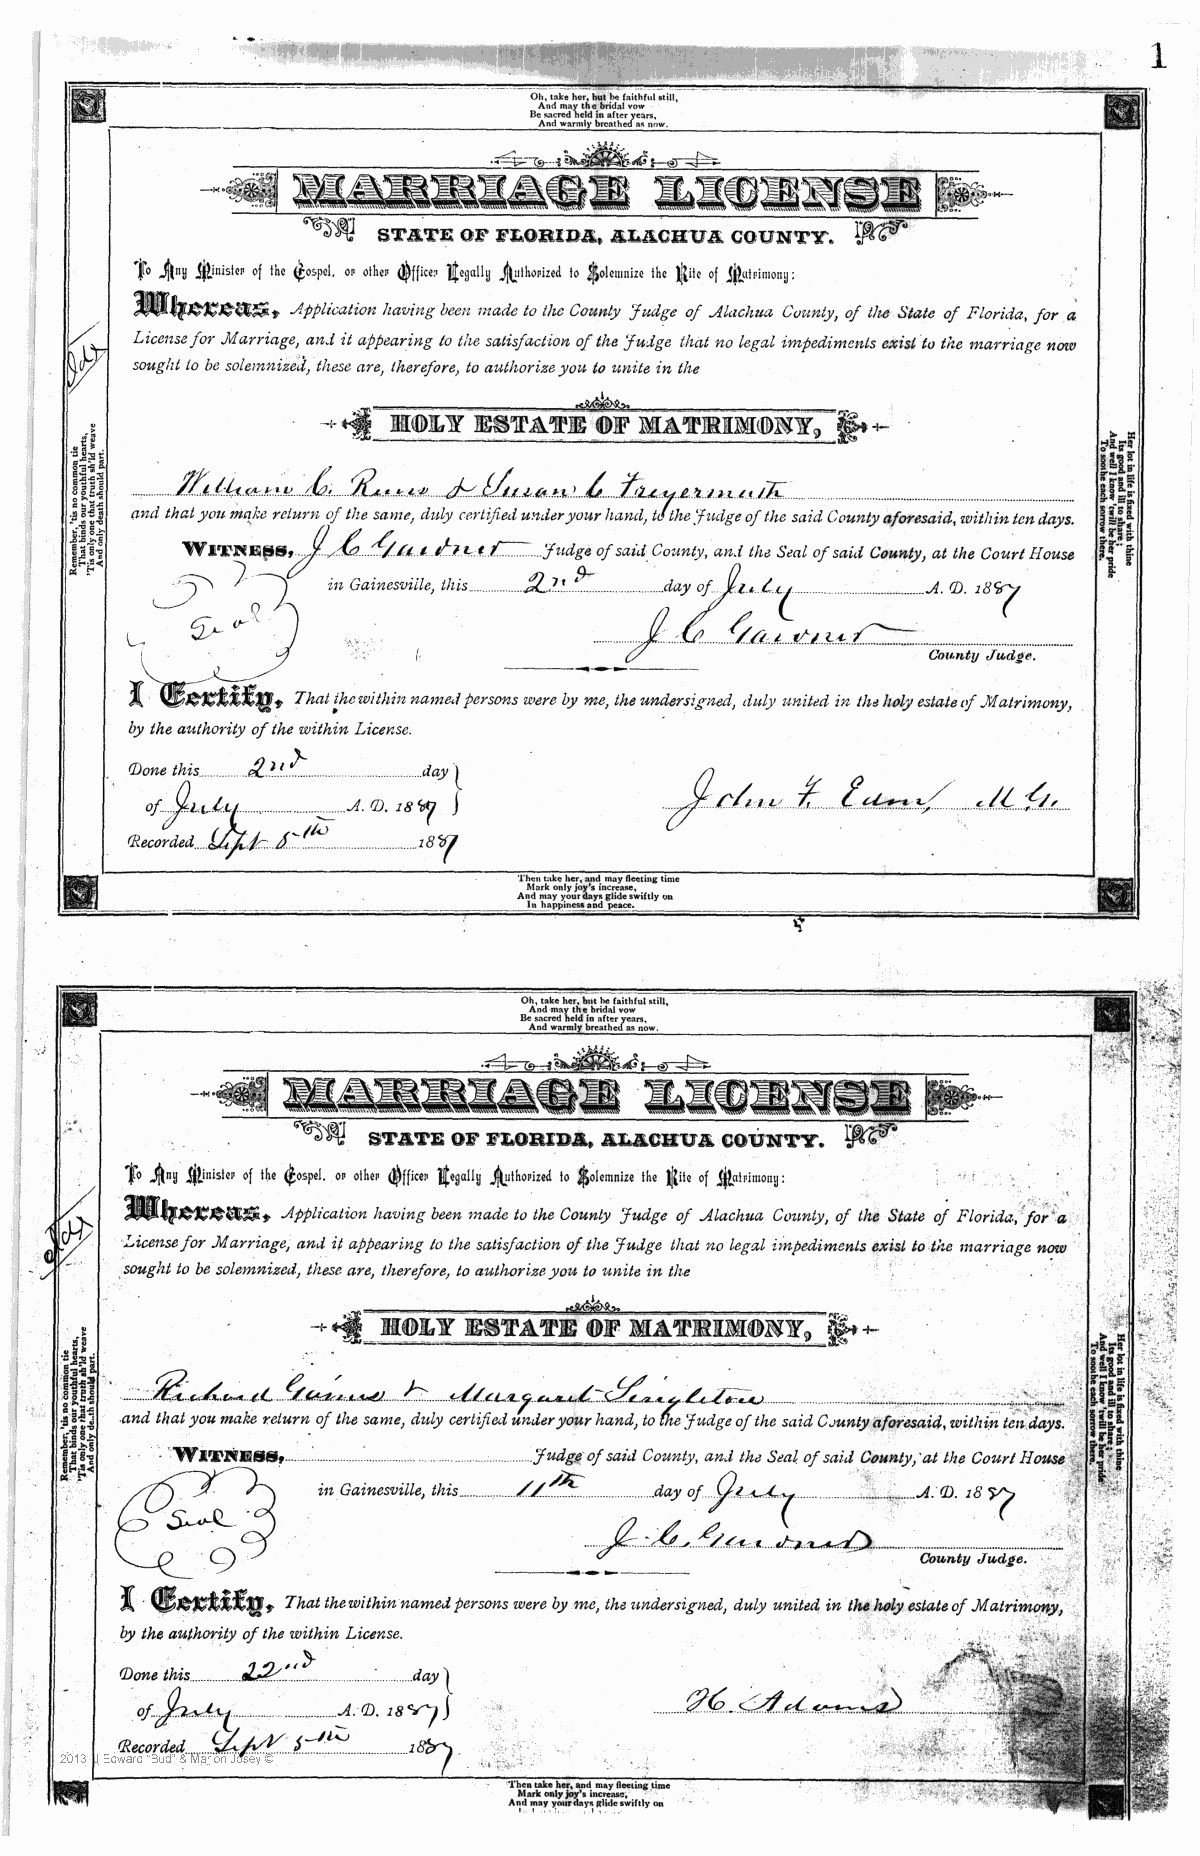 1
Oh, take her, but be faithful still,
And may the bridal vow
Be sacred held in after years,
And warmly breathed as now.
MARRIAGE LICENSE
STATE OF FLORIDA, ALACHUA COUNTY.
To Any Minister of the Gospel, or other Officer Legally Authorized to Solemnize the Rite of Matrimony:
Whereas, Application having been made to the County Judge of Alachua County, of the State of Florida, for a
License for Marriage, and it appearing to the satisfaction of the Judge that no legal impediments exist to the marriage now
sought to be solemnized, these are, therefore, to authorize you to unite in the
HOLY ESTATE OF MATRIMONY,
William C. & Susan C Freyermuth
and that you make return of the same, duly certified under your hand, to the Judge of the said County aforesaid, within ten days.
WITNESS, J C Gardner Judge of said County, and the Seal of said County, at the Court House
in Gainesville, this 2nd day of July A. D. 1887
Seal
J C Gardner
County Judge.
I Certify, That the within named persons were by me, the undersigned, duly united in the holy estate of Matrimony,
by the authority of the within License.
Done this 2nd day
of July A. D. 1887
John F. M.G.
Recorded Sept 5th 1887
Remember, 'tis no common tie
That binds our youthful hearts,
'Tis only one that truth sh'ld weave
And only death should part.
Her lot in life is fixed with thine
Its good and ill to share,
And well I know 'twill be her pride
To soothe each sorrow there.
Then take her, and may fleeting time
Mark only joy's increase,
And may your days glide swiftly on
In happiness and peace.
Oh, take her, but be faithful still,
And may the bridal vow
Be sacred held in after years,
And warmly breathed as now.
MARRIAGE LICENSE
STATE OF FLORIDA, ALACHUA COUNTY.
To Any Minister of the Gospel, or other Officer Legally Authorized to Solemnize the Rite of Matrimony:
Whereas, Application having been made to the County Judge of Alachua County, of the State of Florida, for a
License for Marriage, and it appearing to the satisfaction of the Judge that no legal impediments exist to the marriage now
sought to be solemnized, these are, therefore, to authorize you to unite in the
HOLY ESTATE OF MATRIMONY,
Richard Gaines & Margaret Singleton
and that you make return of the same, duly certified under your hand, to the Judge of the said County aforesaid, within ten days.
WITNESS, Judge of said County, and the Seal of said County, at the Court House
in Gainesville, this 11th day of July A. D. 1887
Seal
J. C. Gardner
County Judge.
I Certify, That the within named persons were by me, the undersigned, duly united in the holy estate of Matrimony,
by the authority of the within License.
Done this 22nd day
of July A. D. 1887
H. Adams
Recorded Sept 5th 1887
2013 J Edward "Bud" & Marion Josey ©
Remember, 'tis no common tie
That binds our youthful hearts,
'Tis only one that truth sh'ld weave
And only death should part.
Her lot in life is fixed with thine
Its good and ill to share,
And well I know 'twill be her pride
To soothe each sorrow there.
Then take her, and may fleeting time
Mark only joy's increase,
And may your days glide swiftly on